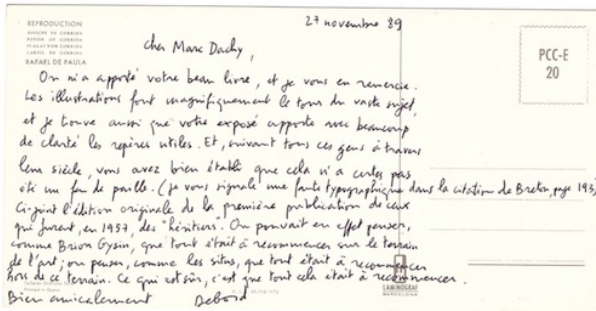 REPRODUCTION
AFFICHE DE CORRIDA
POSTER OF CORRIDA
PLAKAT VON CORRIDA
CARTEL DE CORRIDA
RAFAEL DE PAULA
27 novembre 89
PCC-E
20
cher Marc Dachy,
On m'a apporté votre beau livre, et je vous en remercie.
Les illustrations font magnifiquement le tour du vaste sujet,
et je trouve aussi que votre exposé apporte avec beaucoup
de clarté les repères utiles. Et, suivant tous ces gens à travers
leur siècle, vous avez bien établi que cela n'a certes pas
été un feu de paille. (je vous signale une faute typographique dans la citation de Breton, page 193)
Ci-joint l'édition originale de la première publication de ceux
qui furent, en 1957, des "héritiers". On pouvait en effet penser,
comme Brion Gysin, que tout était à recommencer sur le terrain
de l'art; ou penser, comme les situs, que tout était à recommencer
hors de ce terrain. Ce qui est sûr, c'est que tout cela était à recommencer.
Bien amicalement Debord
Printed in Spain
LAMINOGRAF
BARCELONA